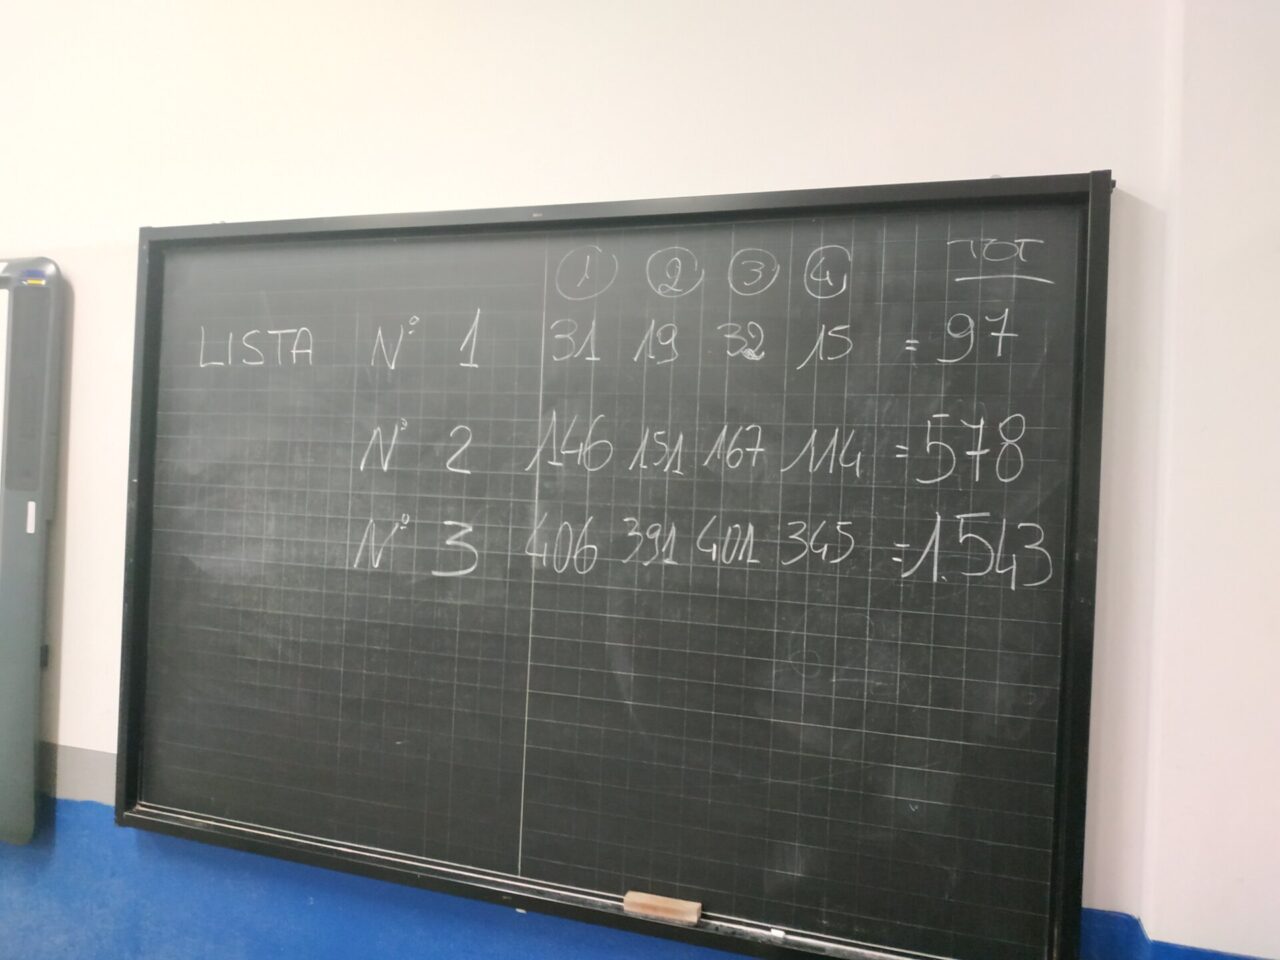 ① ② ③ ④ TOT
LISTA N° 1 31 19 32 15 = 97
N° 2 146 151 167 114 = 578
N° 3 406 391 401 345 = 1.543